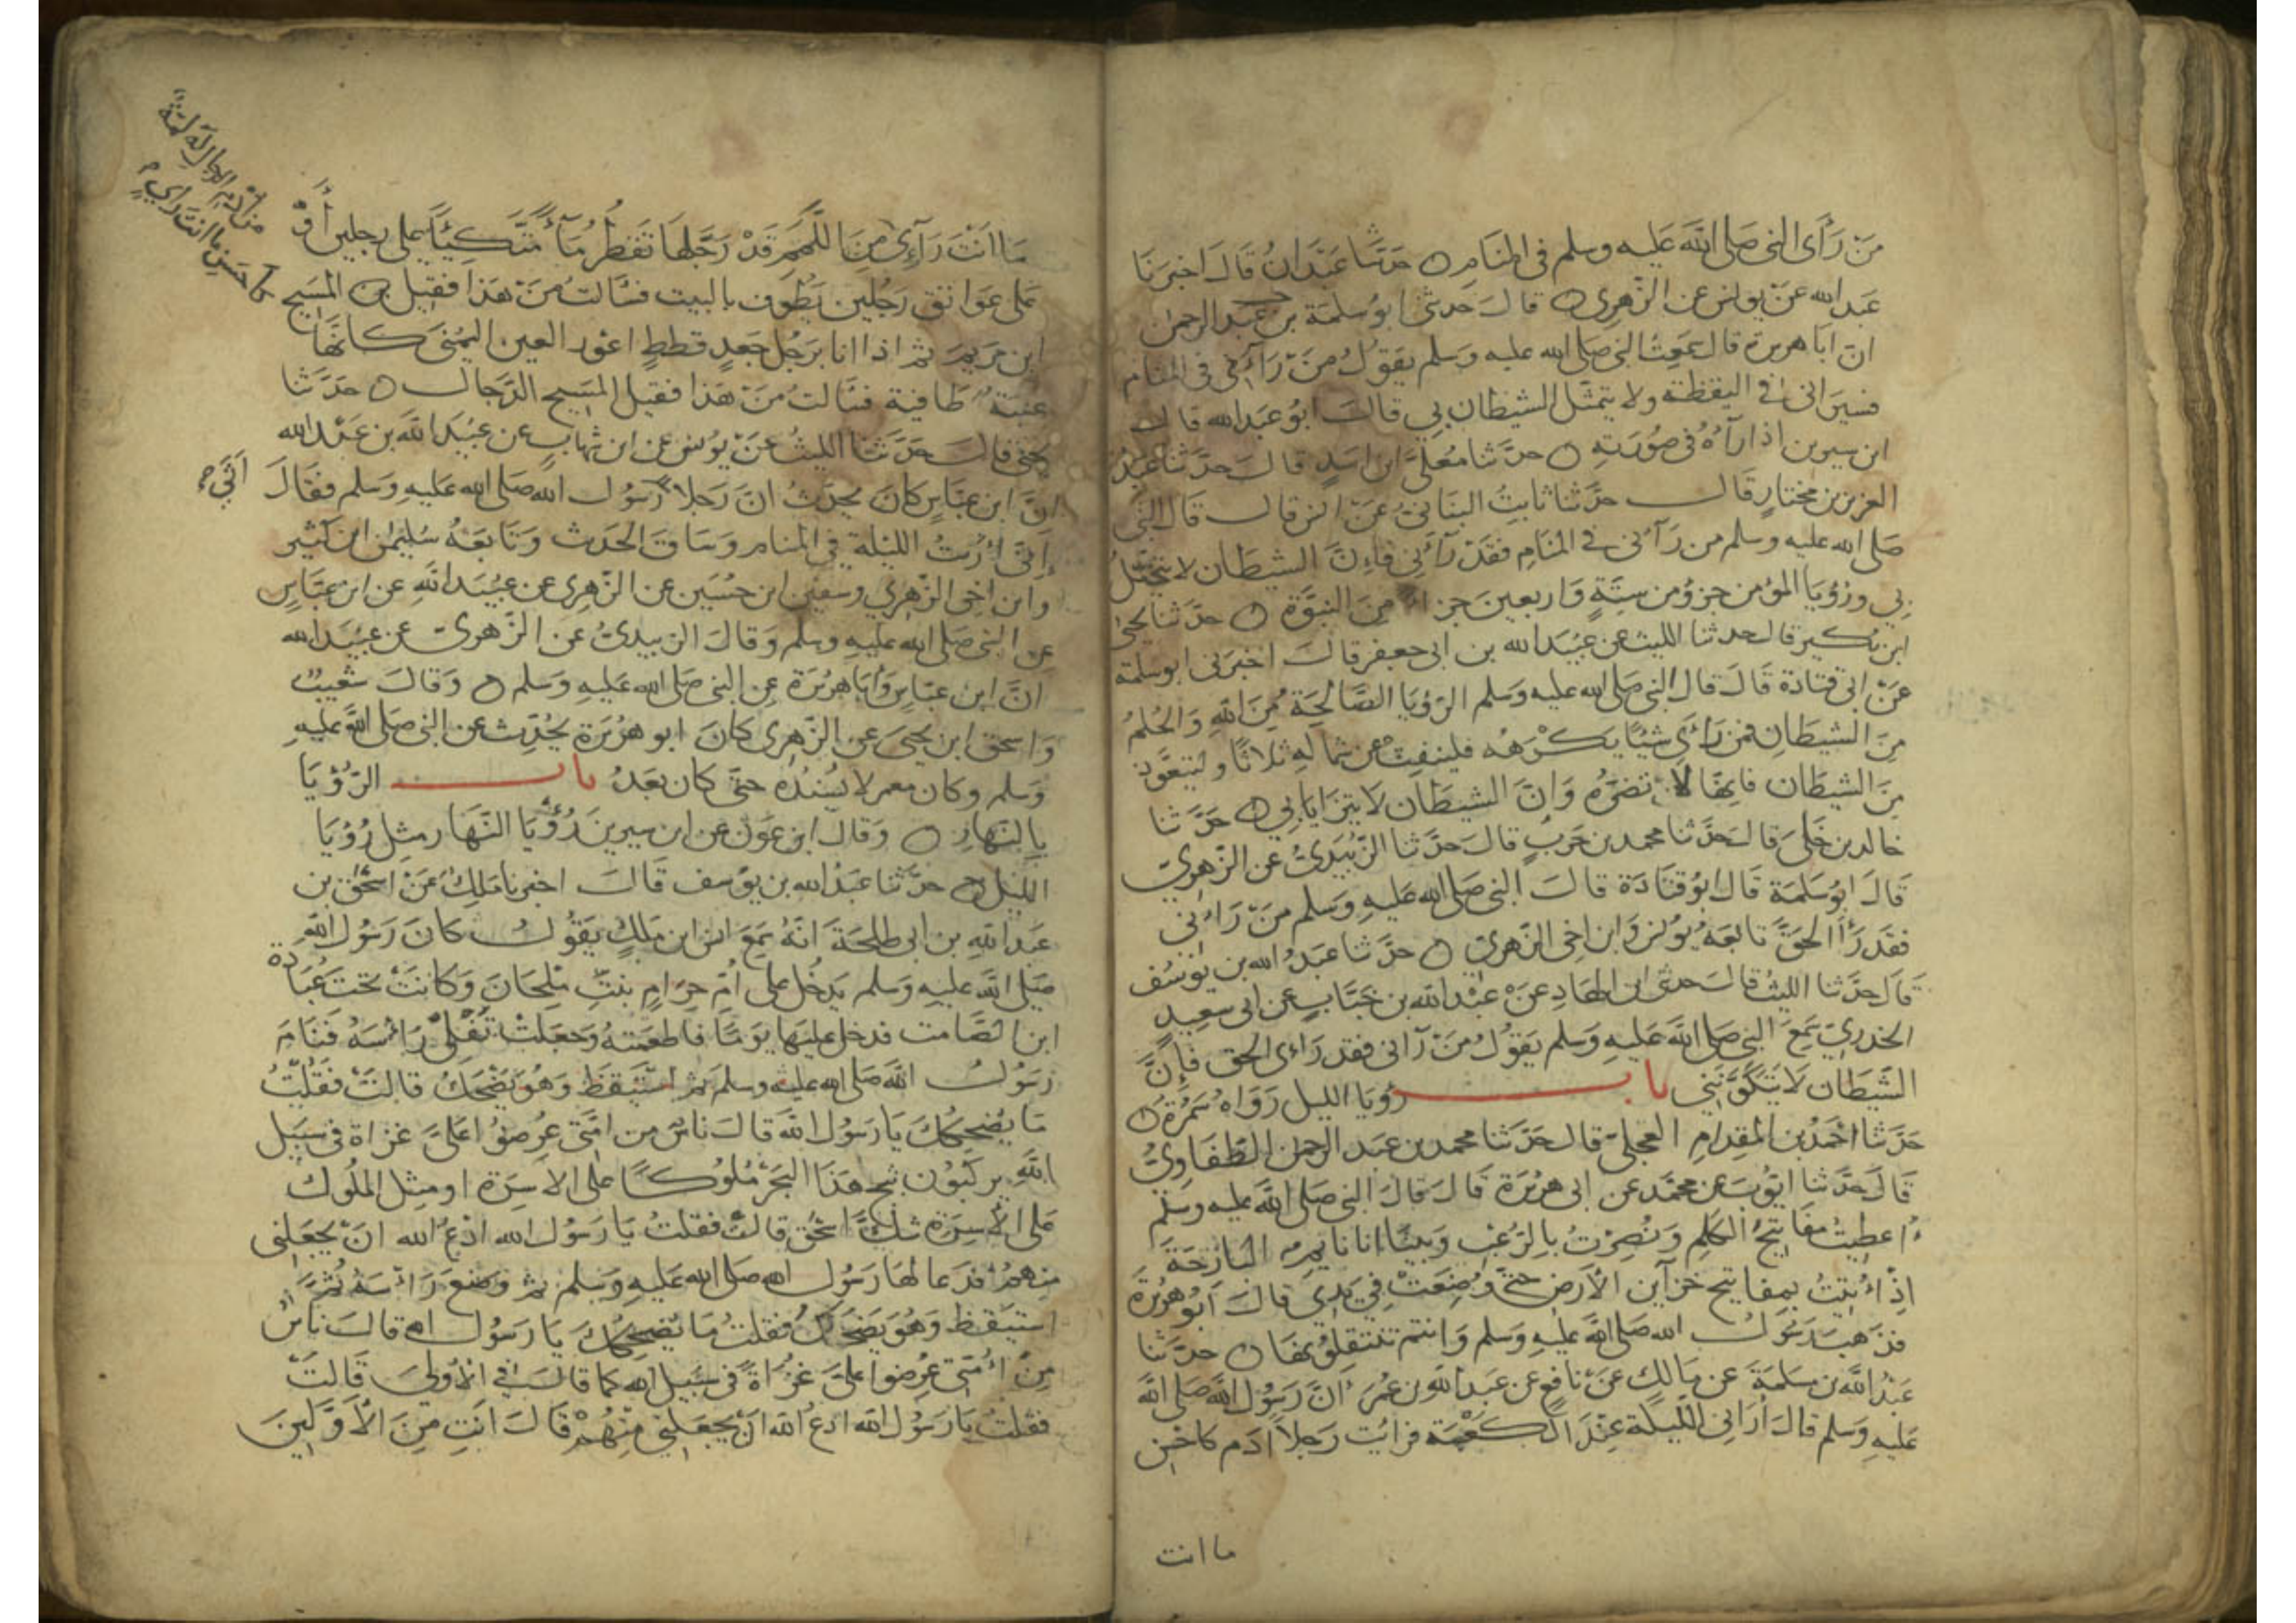 مَنْ رَأَى النبي صَلى الله عَليه وسلم في المنَامِ ۝ حَدثنا عَبْدَانُ قَالَ اخبَرَنَا
عَبد الله عَنْ يونس عن الزّهري ۝ قالَ حَدثني ابُو سَلمَة بن عَبد الرحمن
انّ ابَا هريرة قال سَمِعتُ النبي صَلى الله عليه وَسَلم يَقوُلُ مَنْ رَآني في المنام
فسيَراني في اليقظة ولا يتمثّل الشيْطان بِي قالَ ابُو عَبد الله قال
ابن سيرين اذا رَآهُ في صُورَتهِ ۝ حدّثنا مُعَلَّى ابن اسَدٍ قالَ حدّثنا عَبْدُ
العزيز بن مختارٍ قَال حدّثنا ثابتُ البنَانيُّ عَنْ انس قال قَال النبي
صَلى الله عليه وسلم من رَآني في المنَامِ فقَدْ رَآني فَاِنَّ الشيطَان لا يتمثّلُ
بِي ورُؤيَا المؤمن جزؤٌ من ستّةٍ وَاربعينَ جزءاً مِنَ النبوّة ۝ حدّثنا يحيى
ابن بُكير قال حدثنا الليث عن عُبَيد الله بن ابي جعفر قالَ اخبَرني ابو سَلمة
عَنْ ابي قتادة قَالَ قال النبي صَلى الله عليه وَسَلم الرّؤيَا الصَّالحَة مِنَ اللهِ وَالحُلمُ
مِنَ الشيطَانِ فمَن رَأَى شيْئًا يَكْرَهُه فلينفِث عن شمالهِ ثلاثًا وليتعَوّذ
مِنَ الشيطَان فانهَا لا تضرّهُ وَانَّ الشيطَان لا يتزَايَا بي ۝ حَدّثنا
خالد بن خَلِيَ قالَ حَدَّثنا محمد بن حَربٍ قالَ حَدّثنا الزُّبَيديُّ عن الزّهري
قَالَ ابُو سَلمَة قَال ابُو قتَادَة قالَ النبي صَلى الله عَليهِ وَسَلم مَنْ رَآني
فقَد رَأَا الحَقَّ تابعَهُ يُونس وَابن اخِي الزّهريّ ۝ حَدّثنا عَبدُ الله بن يُوسُف
قَال حدَّثنا الليثُ قالَ حَدثني ابن الهَادِ عَنْ عَبْد الله بن خبّابٍ عن ابي سعِيدٍ
الخدريّ سَمِعَ النبي صَلى الله عَليهِ وَسَلم يَقوُلُ مَنْ رَآني فقد رَاى الحق فإنَّ
الشّيطَان لَا يَتكَوَّنُني بابُ رُؤيَا الليل رَوَاهُ سَمُرَة ۝
حَدّثنا احمَدُ بن المِقدامِ العجليّ قال حَدّثنا محمد بن عبَد الرحمن الطّفَاوِيُّ
قَال حَدّثنا ايّوبُ عن محَمَّد عن ابي هريْرَة قَالَ قَالَ النبي صَلى الله عليه وسلم
اُعطِيتُ مفَاتِيحُ الكَلِمِ وَنُصِرْتُ بِالرُّعْبِ وَبينَا انا نايم البَارحَة
اِذْ أُتِيتُ بِمفَاتيح خزَآين الأَرض حتّى وُضِعَتْ في يَدِي قالَ ابُو هريْرة
فذهبَ رَسُولُ الله صَلى الله عَليهِ وَسلم وَانتم تَنتقِلونهَا ۝ حدّثنا
عَبدُ الله بن سَلمَةَ عن مَالك عَنْ نافعٍ عن عَبد الله بن عُمَرَ انَّ رَسُول الله صَلى الله
عَليهِ وَسلم قالَ أُرَاني اللّيلة عِندَ الكعْبَة فرايْت رَجلاً آدَم كاحْسن
ما انت
مَا انتَ رَآءٍ مِنَ اللِّمَم قَدْ رَجَّلهَا تَقطُر مَآءً مُتَّكِئًا عَلى رجلين أَوْ
عَلى عَوَاتق رَجُلين يَطُوف بالبيت فسَالتُ مَنْ هَذا فقيل المَسيح
ابن مَريَم ثم اذا انا برَجُل جَعدٍ قططٍ اعْور العين اليُمْنى كانهَا
عنبَةٌ طَافية فسَالتُ مَنْ هَذا فقيل المَسِيح الدّجال ۝ حَدّثنا
يحيى قالَ حَدّثنا الليثُ عَنْ يُونس عَن ابن شهابٍ عن عُبَيد الله بن عَبْد الله
انَّ ابن عبّاسٍ كانَ يحدّثُ انَّ رَجلاً رَسُول الله صَلى الله عَليهِ وَسَلم فقَالَ
إني أُرِيْتُ الليْلة في المنام وَسَاقَ الحَديث وَتَابَعَهُ سُليمٰن ابن كثير
وابن اخِي الزّهري وسفين ابن حُسَين عن الزّهِري عن عبَيد الله عن ابن عبّاسٍ
عن النبي صَلى الله عليهِ وسلم وَقالَ الزبيديُّ عن الزّهريّ عن عبَيد الله
انَّ ابن عبّاس وَأبا هريْرَة عن النبي صَلى الله عَليهِ وَسَلم ۝ وَقالَ شعَيبٌ
وَاسحق ابن يحيَى عن الزّهري كانَ ابو هريْرَة يُحَدِّث عن النبي صَلى الله عليهِ
وَسَلم وكان معمر لا يُسْندُه حتى كان بَعَدُ بابُ الرّؤيَا
بالنّهار ۝ وَقالَ ابن عَون عن ابن سيرين رُؤيَا النّهَار مثل رُؤيَا
الليل ۝ حدّثنا عَبدُ الله بن يوسف قَالَ اخبرنا ملِك عَنْ اسحٰق بن
عَبد الله بن ابي طلحَة انّهُ سَمِعَ انس ابن ملكٍ يَقوُلُ كانَ رَسُول الله
صَلى الله عليهِ وَسلم يَدخُل على اُمّ حرَامٍ بنتِ مِلحَانَ وَكانتْ تحتَ عُبَادة
ابن الصَّامت فدخل عليهَا يومًا فاطعَمتهُ وَجعَلتْ تُفْلِي رَاسَهُ فنَامَ
رَسُول الله صَلى الله عليه وسلم ثم استيقظَ وَهُو يَضْحَكُ قالتْ فقُلتُ
مَا يُضْحِكُكَ يَا رَسُول الله قَالَ ناسٌ من امّتى عُرِضوُا عَلىَّ غزاة في سَبيل
اللهِ يركبُون ثبج هَذَا البَحْر مُلوُكًا على الاسِرّة او مثل الملُوك
عَلى الأَسِرّة شكَّ اسْحٰق قالتْ فقلتُ يَا رَسُول الله ادْعُ الله انْ يجعَلني
منهمُ فدَعا لهَا رَسُول الله صَلى الله عَليهِ وَسَلم ثم وَضَعَ رَاسَهُ ثمَّ
استيقظ وَهُو يَضحَكُ فقلتُ مَا يُضحِكُكَ يَا رَسُول الله قالَ نَاسٌ
مِنْ امّتى عُرضوا عَلىَّ غُزَاةً في سَبيل الله كما قالَ في الاُولىَ قَالتْ
فقلتُ يَا رَسُول الله ادعُ الله انْ يَجعَلني مِنْهُمْ قَالَ انتِ مِنَ الأَوّلينَ
من ادم الرجال له لمّة
كاحسن ما انت راي
اتى